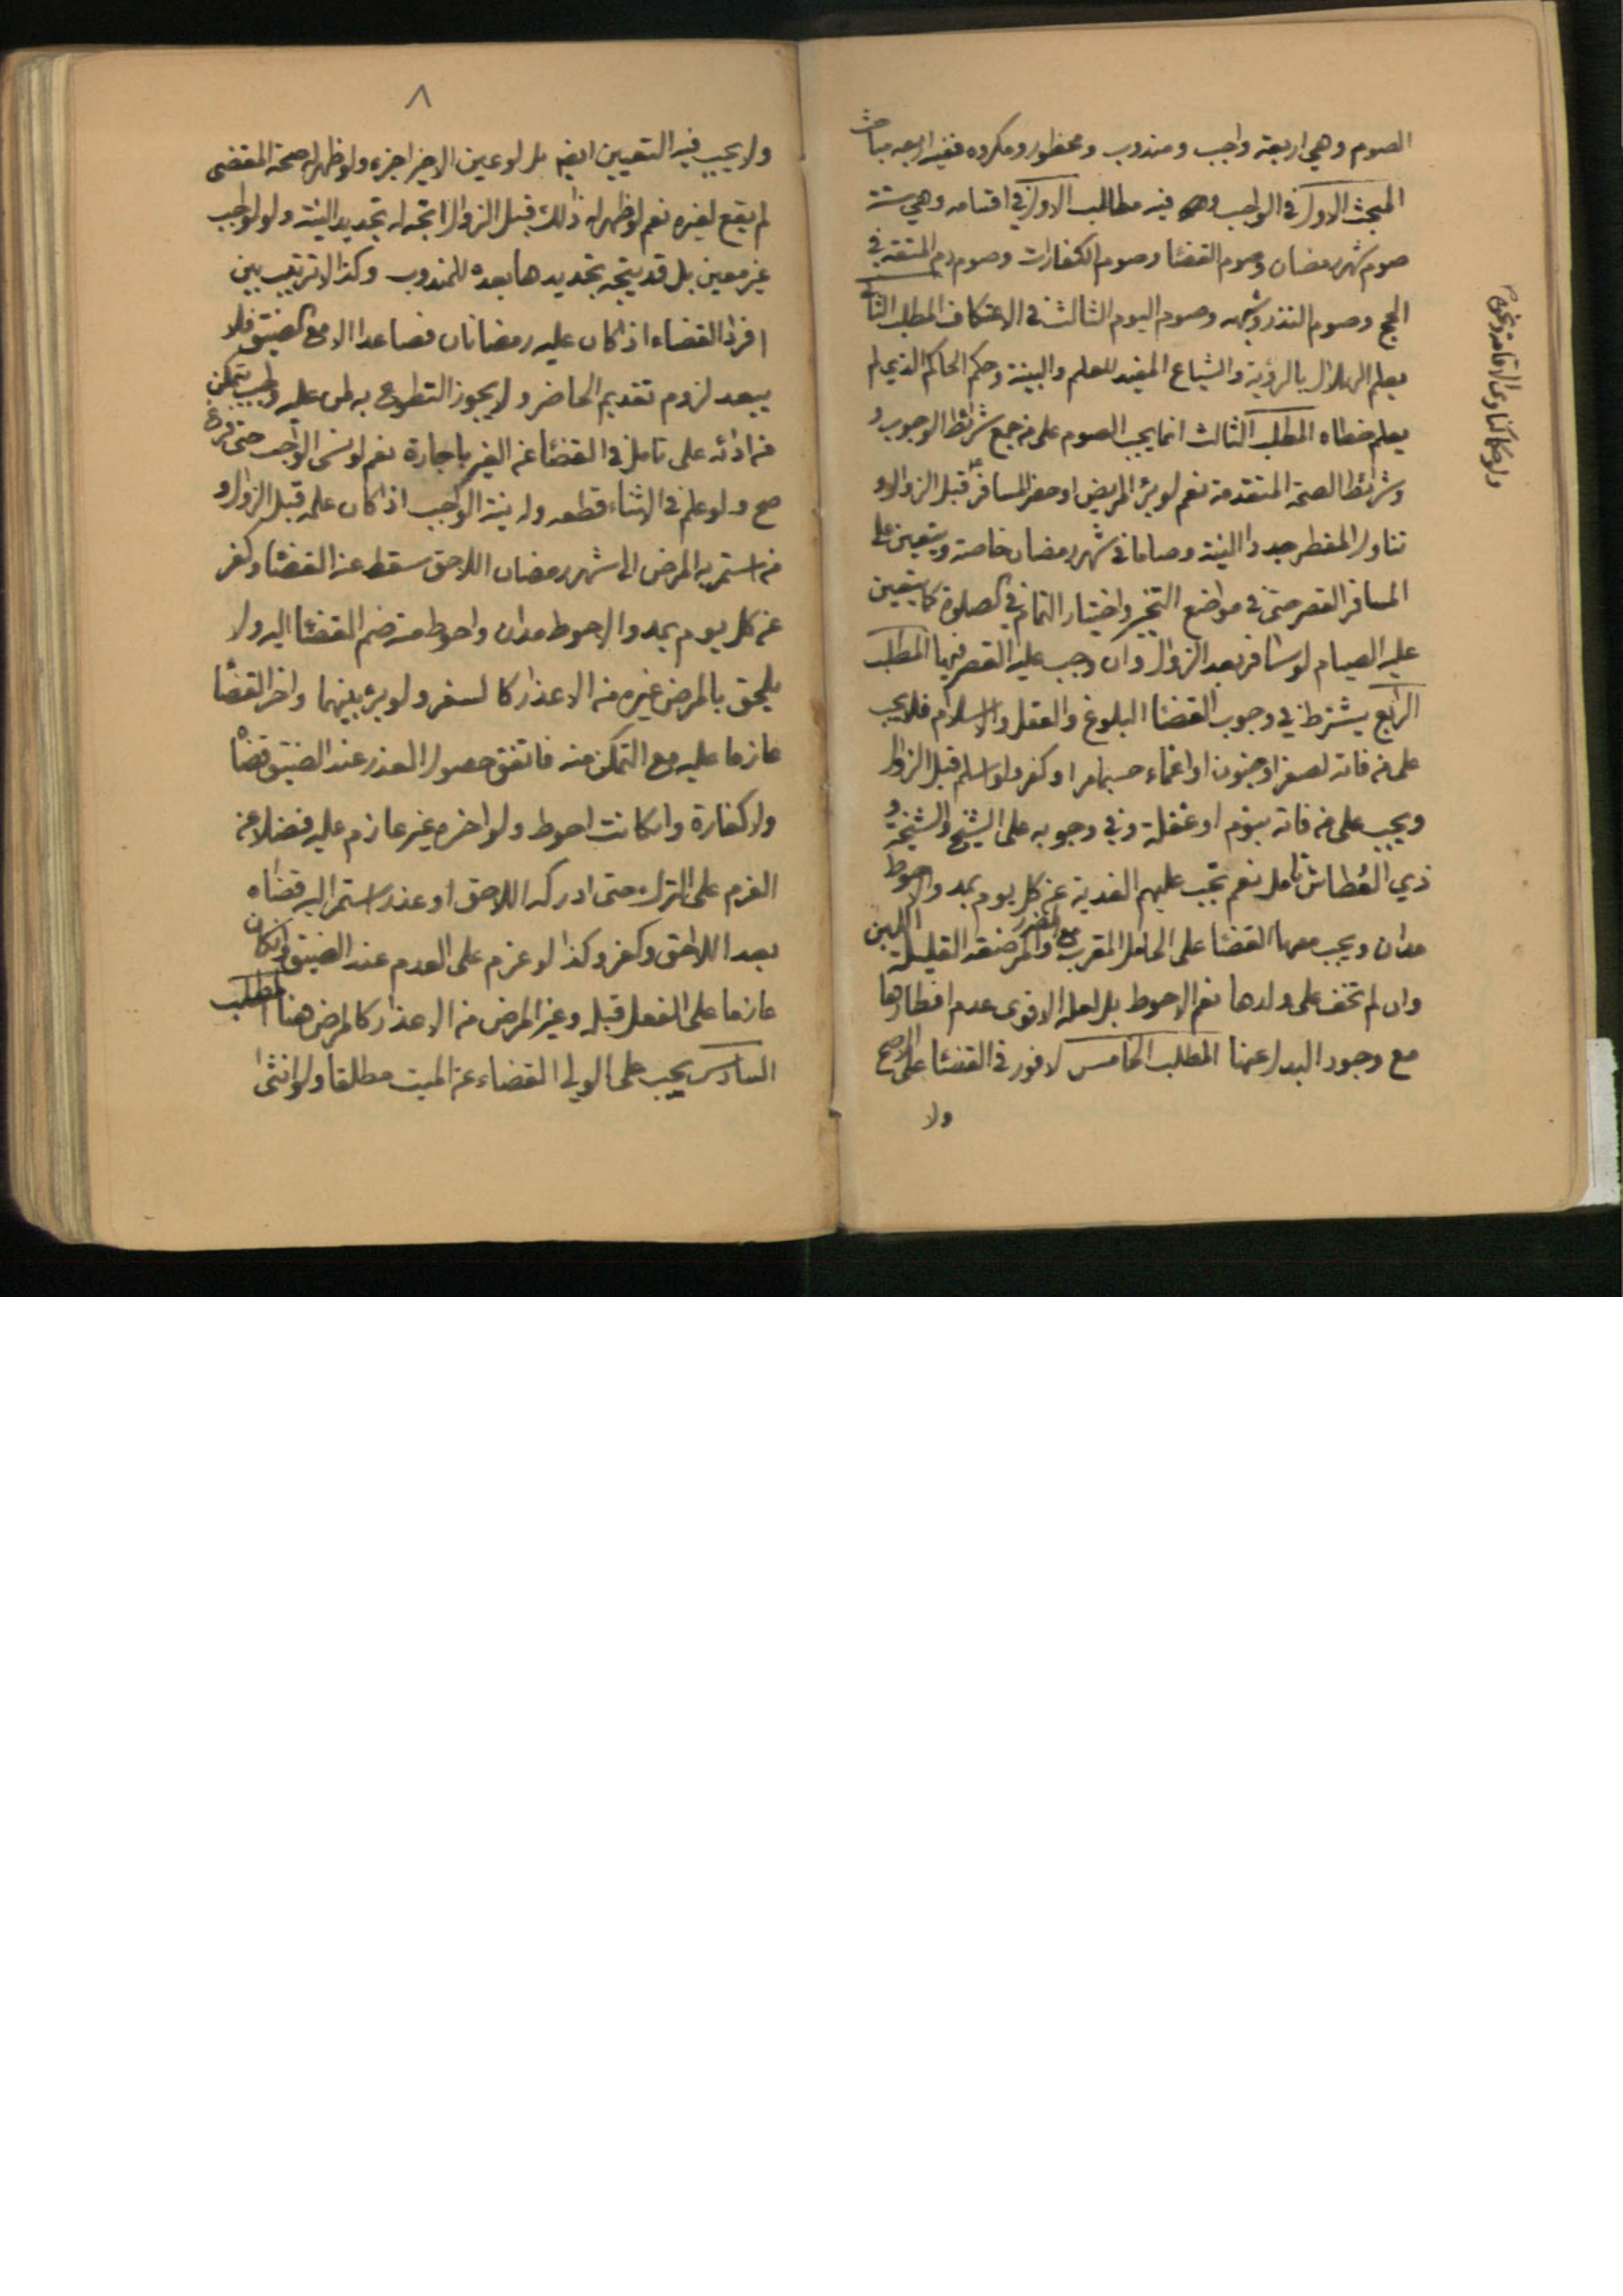 الصوم وهي اربعة واجب ومندوب ومحظور ومكروه ففيه اربعه مباحث
المبحث الاول في الواجب وفيه مطالب الاول في اقسامه وهي ستة
صوم شهر رمضان وصوم القضا وصوم الكفارات وصوم دم المتعة في
الحج وصوم النذر وشبهه وصوم اليوم الثالث في الاعتكاف المطلب الثاني
يعلم الهلال بالرؤية والشياع المفيد للعلم والبينة وحكم الحاكم الذي لم
يعلم خطاه المطلب الثالث انما يجب الصوم على من جمع شرائط الوجوب
وشرائط الصحة المتقدمة نعم لو برء المريض او حضر المسافر قبل الزوال و
تناول المفطر جددا النية وصاما في شهر رمضان خاصة ويتعين على
المسافر القصر حتى في مواضع التخير واختيار التمام في الصلوة كما يتعين
عليه الصيام لو سافر بعد الزوال وان وجب عليه القصر فيها المطلب
الرابع يشترط في وجوب القضا البلوغ والعقل والاسلام فلا يجب
على من فاته لصغر او جنون او اغماء حسبما مر او كفر ولو اسلم قبل الزوال
ويجب على من فاته بنوم او غفلة وفي وجوبه على الشيخ والشيخة و
ذي العطاش تامل نعم تجب عليهم الفدية عن كل يوم بمد والاحوط
مدان ويجب معها القضا على الحامل المقرب والمرضعة القليلة اللبن
مع التضرر
وان لم تخف على ولدها نعم الاحوط بل لعله الاقوى عدم افطارها
مع وجود البدل عنها المطلب الخامس لا فور في القضا على الاصح
ولا
٨
ولا يجب فيه التعيين ايضا بل لو عين الاخير اجزء ولو ظهر له صحة المقضى
لم يقع لغيره نعم لو ظهر له ذلك قبل الزوال اتجه له تجديد النية ولو لواجب
غير معين بل قد يتجه تجديدها بعده للمندوب وكذا لا ترتيب بين
افراد القضاء اذا كان عليه رمضانان فصاعدا الا مع الضيق فلا
يبعد لزوم تقديم الحاضر ولا يجوز التطوع به لمن عليه واجب يتمكن
من ادائه على تامل في القضا عن الغير باجارة نعم لو نسى الواجب حتى فرغ
صح ولو علم في الاثناء قطعه وله نية الواجب اذا كان علمه قبل الزوال و
من استمر به المرض الى شهر رمضان اللاحق سقط عنه القضا وكفر
عن كل يوم بمد والاحوط مدان واحوط منه ضم القضا اليه ولا
يلحق بالمرض غيره من الاعذار كالسفر ولو برء بينهما واخر القضا
عازما عليه مع التمكن منه فاتفق حصول العذر عند الضيق قضا
ولا كفارة وان كانت احوط ولو اخره غير عازم عليه فضلا عن
العزم على الترك حتى ادركه اللاحق او عذر استمر اليه قضاه
بعد اللاحق وكفر وكذا لو عزم على العدم عند الضيق وان كان
عازما على الفعل قبله وغير المرض من الاعذار كالمرض هنا المطلب
السادس يجب على الولي القضاء عن الميت مطلقا ولو انثى